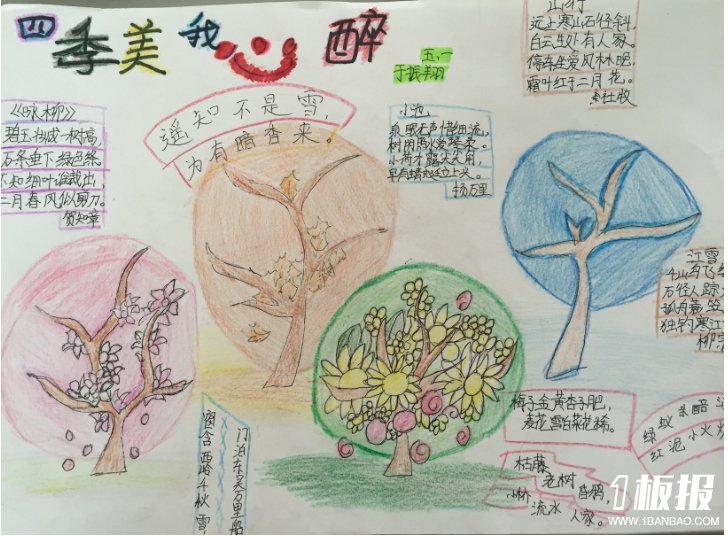 四季美我心醉
五、一
于振翔
《咏柳》
碧玉妆成一树高,
条垂下绿色绦。
不知细叶谁裁出,
二月春风似剪刀。
贺知章
遥知不是雪,
为有暗香来。
小池
泉眼无声惜细流,
树阴照水爱晴柔。
小荷才露尖尖角,
早有蜻蜓立上头。
杨万里
山行
远上寒山石径斜
白云生处有人家。
停车坐爱枫林晚
霜叶红于二月花。
杜牧
江雪
千山鸟飞
径人踪
孤舟蓑笠
独钓寒江
柳宗
窗含西岭千秋雪,
门泊东吴万里船
梅子金黄杏子肥,
麦花雪白菜花稀。
枯藤
老树
昏鸦,
小桥
流水
人家。
绿蚁
醅
红泥小火
1板报
WWW.1BANBAO.COM